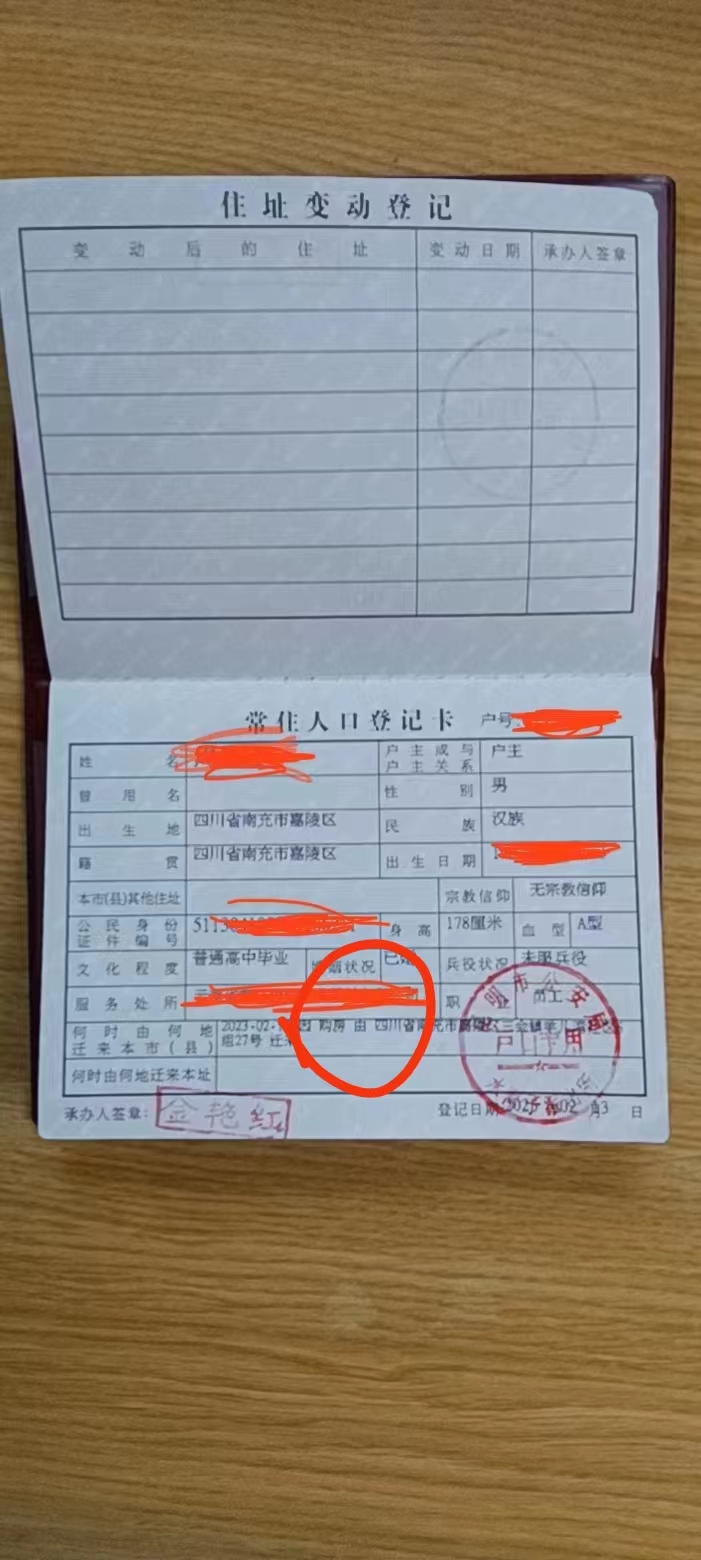 住址变动登记
变动后的住址 变动日期 承办人签章
常住人口登记卡 户号
姓名 户主或与户主关系 户主
曾用名 性别 男
出生地 四川省南充市嘉陵区 民族 汉族
籍贯 四川省南充市嘉陵区 出生日期
本市(县)其他住址 宗教信仰 无宗教信仰
公民身份证件编号 身高 178厘米 血型 A型
文化程度 普通高中毕业 婚姻状况 已婚 兵役状况 未服兵役
服务处所 职业 员工
何时由何地迁来本市(县) 2023-02- 因 购房 由 四川省南充市嘉陵区三会镇
组27号 迁来
何时由何地迁来本址
承办人签章: 金艳红 登记日期 年02月3日
明市公安局
户口专用